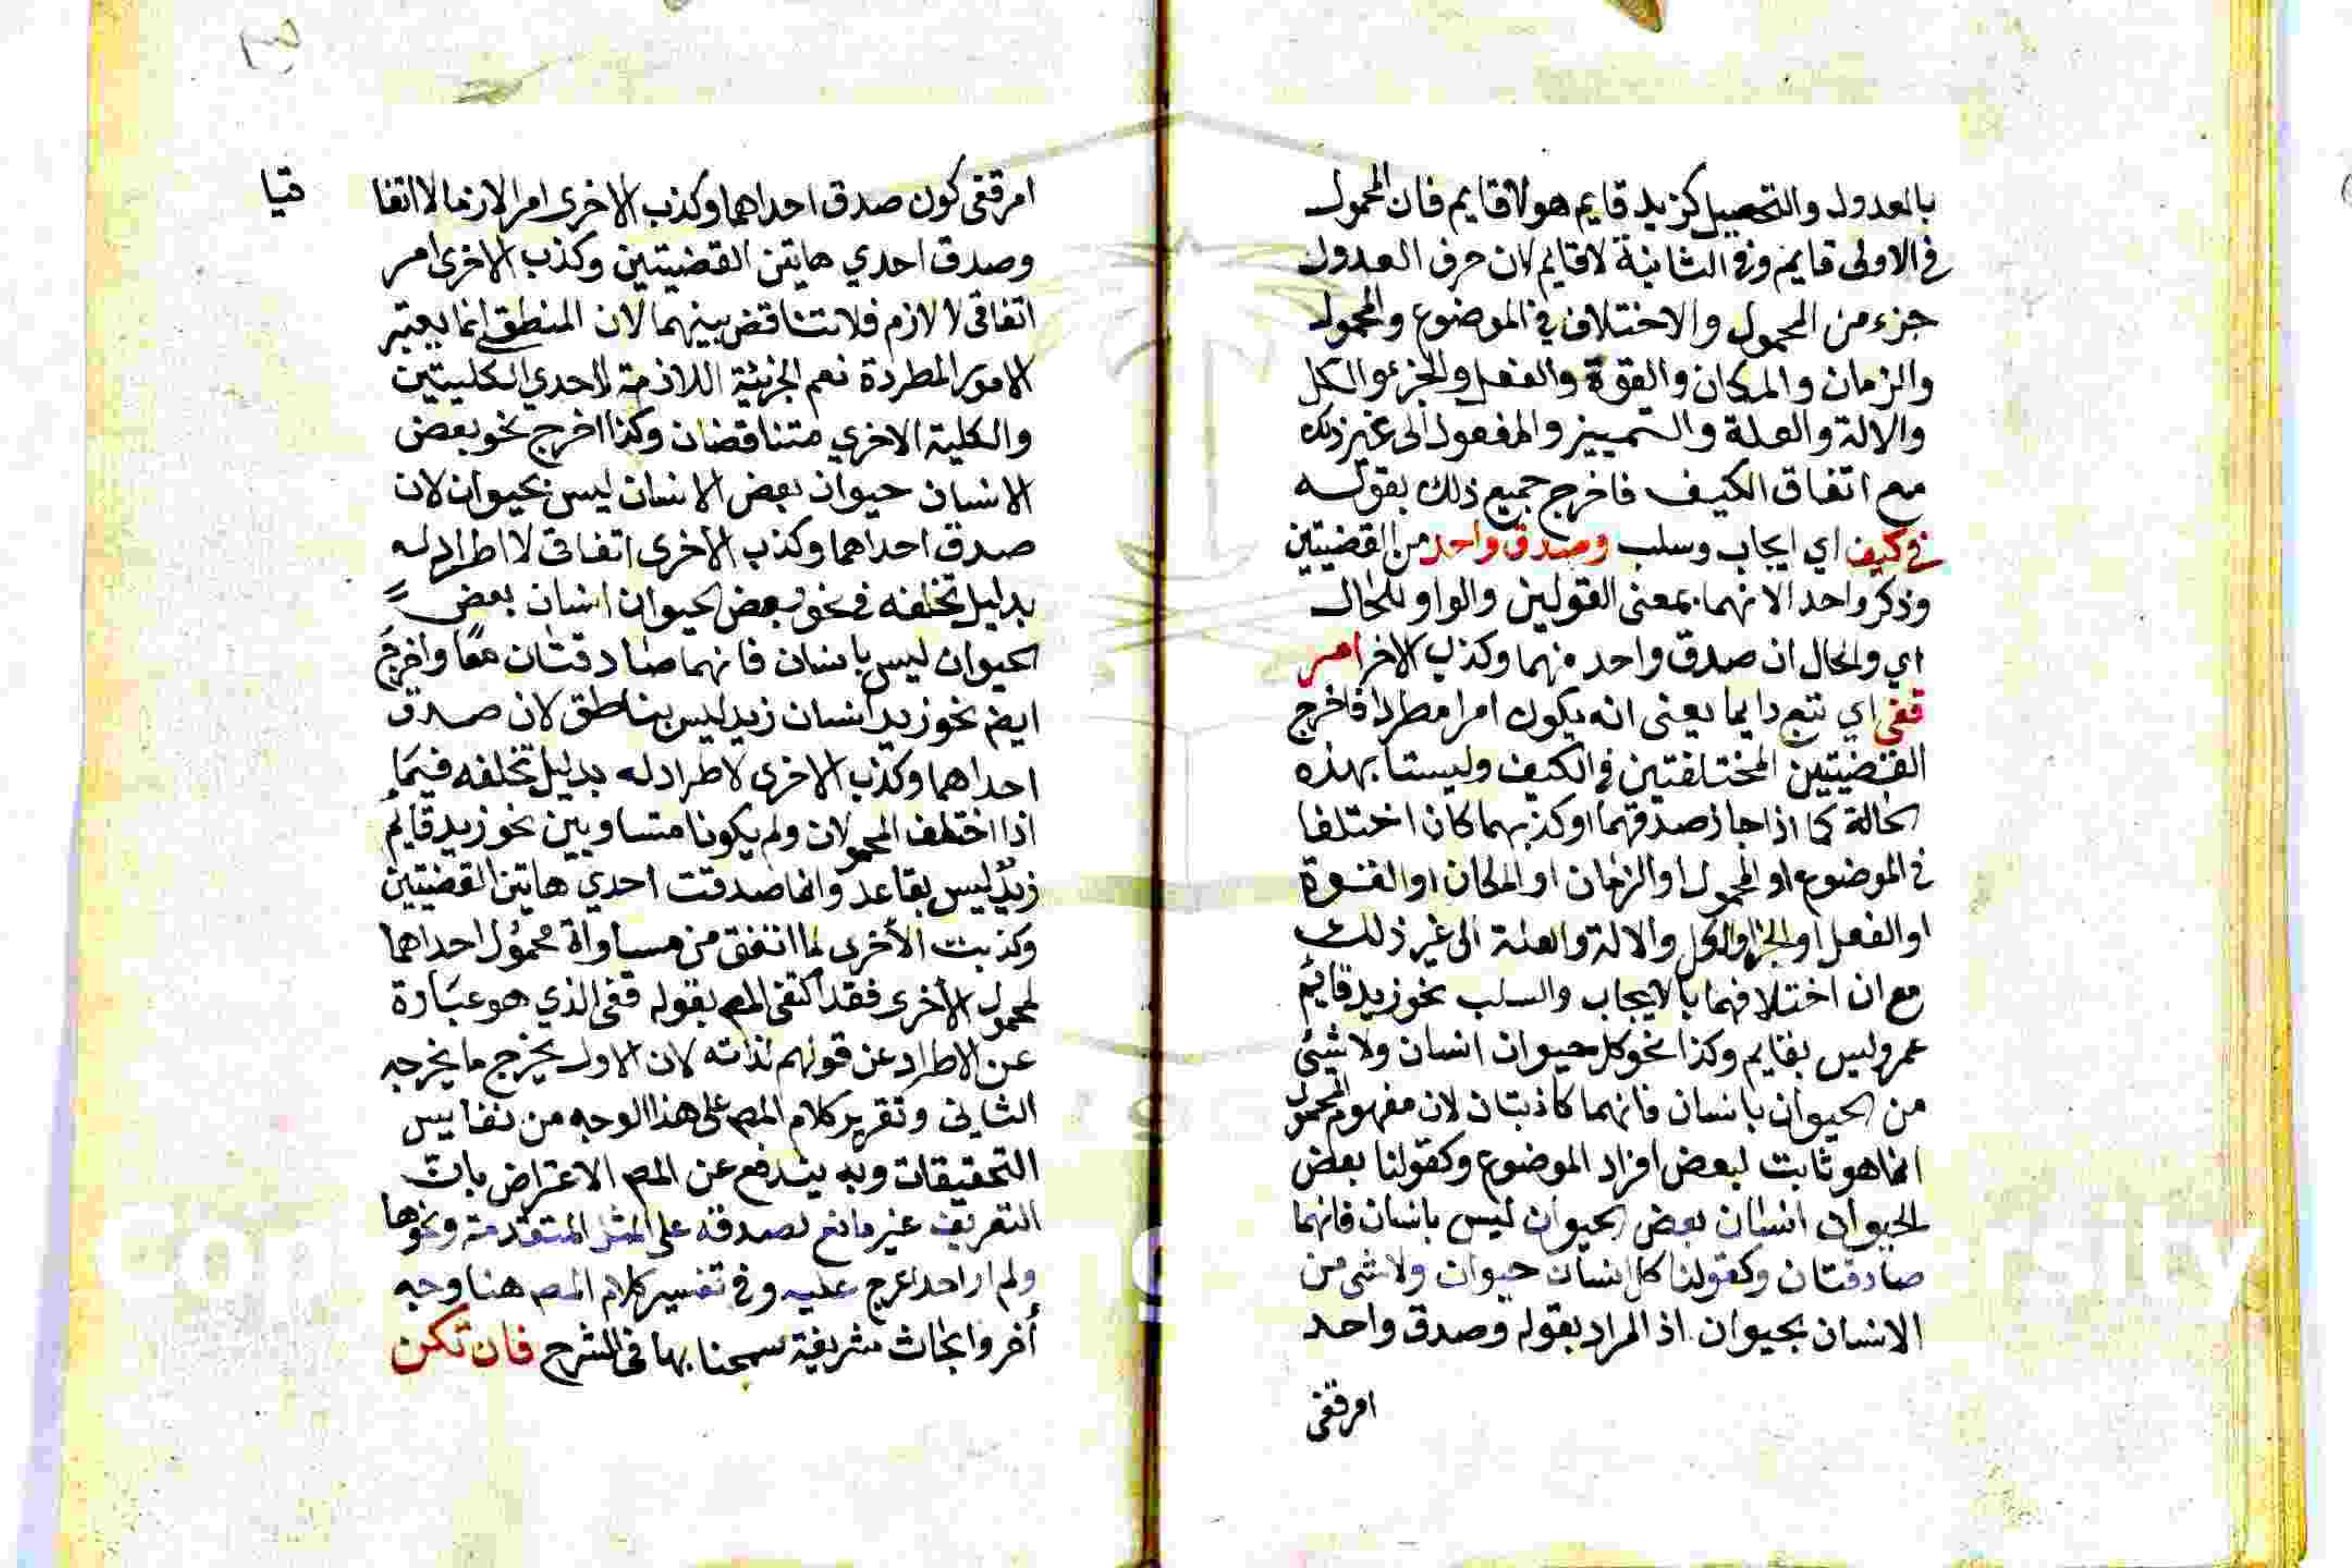 بالعدول والتحصيل كزيد قايم هو لا قايم فان المحمول
في الاولى قايم وفي الثانية لا قايم لان حرف العدول
جزء من المحمول والاختلاف في الموضوع والمحمول
والزمان والمكان والقوة والفعل والجزء والكل
والالة والعلة والتمييز والمفعول الى غير ذلك
مع اتفاق الكيف فاخرج جميع ذلك بقوله
في كيف اي ايجاب وسلب وصدق واحد من القضيتين
وذكر واحد الانهما بمعنى القولين والواو للحال
اي والحال ان صدق واحد منهما وكذب الاخر امر
قفى اي تتبع دايما يعنى انه يكون امرا مطردا فاخرج
القضيتين المختلفتين في الكيف وليستا بهذه
الحالة كما اذا جاز صدقهما او كذبهما كان اختلفا
في الموضوع او المحمول او الزمان او المكان او القوة
او الفعل او الجزا والكل والالة والعلة الى غير ذلك
مع ان اختلافهما بالايجاب والسلب نحو زيد قايم
عمرو ليس بقايم وكذا نحو كل حيوان انسان ولا شئ
من الحيوان بانسان فانهما كاذبتان لان مفهوم المحمول
انما هو ثابت لبعض افراد الموضوع وكقولنا بعض
الحيوان انسان بعض الحيوان ليس بانسان فانهما
صادقتان وكقولنا كل انسان حيوان ولا شئ من
الانسان بحيوان اذ المراد بقوله وصدق واحد
امر قفى
امر قفى كون صدق احداهما وكذب الاخرى امرا لازما لا اتفا قيا
وصدق احدي هاتين القضيتين وكذب الاخرى امر
اتفاقى لا لازم فلا تناقض بينهما لان المنطق انما يعتبر
الامور المطردة نعم الجزئية اللازمة لاحدي الكليتين
والكلية الاخري متناقضان وكذا اخرج نحو بعض
الانسان حيوان بعض الانسان ليس بحيوان لان
صدق احداهما وكذب الاخرى اتفاقى لا اطراد له
بدليل تخلفه في نحو بعض الحيوان انسان بعض
الحيوان ليس بانسان فانهما صادقتان معًا واخرج
ايضم نحو زيد انسان زيد ليس بناطق لان صدق
احداهما وكذب الاخرى لا طراد له بدليل تخلفه فيما
اذا اختلف المحمولان ولم يكونا متساويين نحو زيد قايم
زيد ليس بقاعد وانما صدقت احدي هاتين القضيتين
وكذبت الأخرى لما اتفق من مساواة محمول احداهما
لمحمول الأخرى فقد اكتفى المصم بقوله قفى الذي هو عبارة
عن الاطراد عن قولهم لذاته لان الاول يخرج ما يخرجه
الثانى وتقرير كلام المصم على هذا الوجه من نفايس
التحقيقات وبه يندفع عن المصم الاعتراض بان
التعريف غير مانع لصدقه على المثل المتقدمة ونحوها
ولم ار احدا عرج عليه وفي تفسير كلام المصم هنا وجه
أخر وابحاث شريفة سمحنا بها في الشرح فان تكن